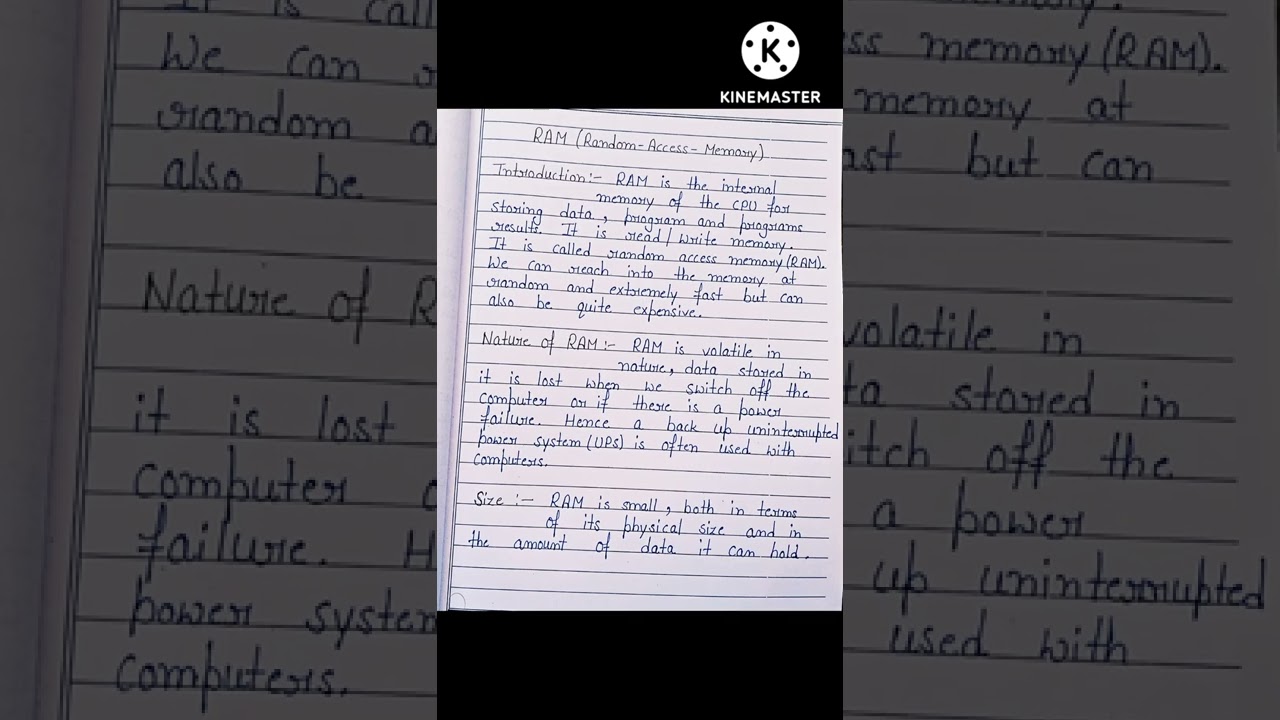 KINEMASTER
RAM (Random-Access-Memory)
Introduction:- RAM is the internal
memory of the CPU for
storing data, program and programs
results. It is read/write memory.
It is called random access memory (RAM).
We can reach into the memory at
random and extremely fast but can
also be quite expensive.
Nature of RAM:- RAM is volatile in
nature, data stored in
it is lost when we switch off the
computer or if there is a power
failure. Hence a back up uninterrupted
power system (UPS) is often used with
computers.
Size:- RAM is small, both in terms
of its physical size and in
the amount of data it can hold.